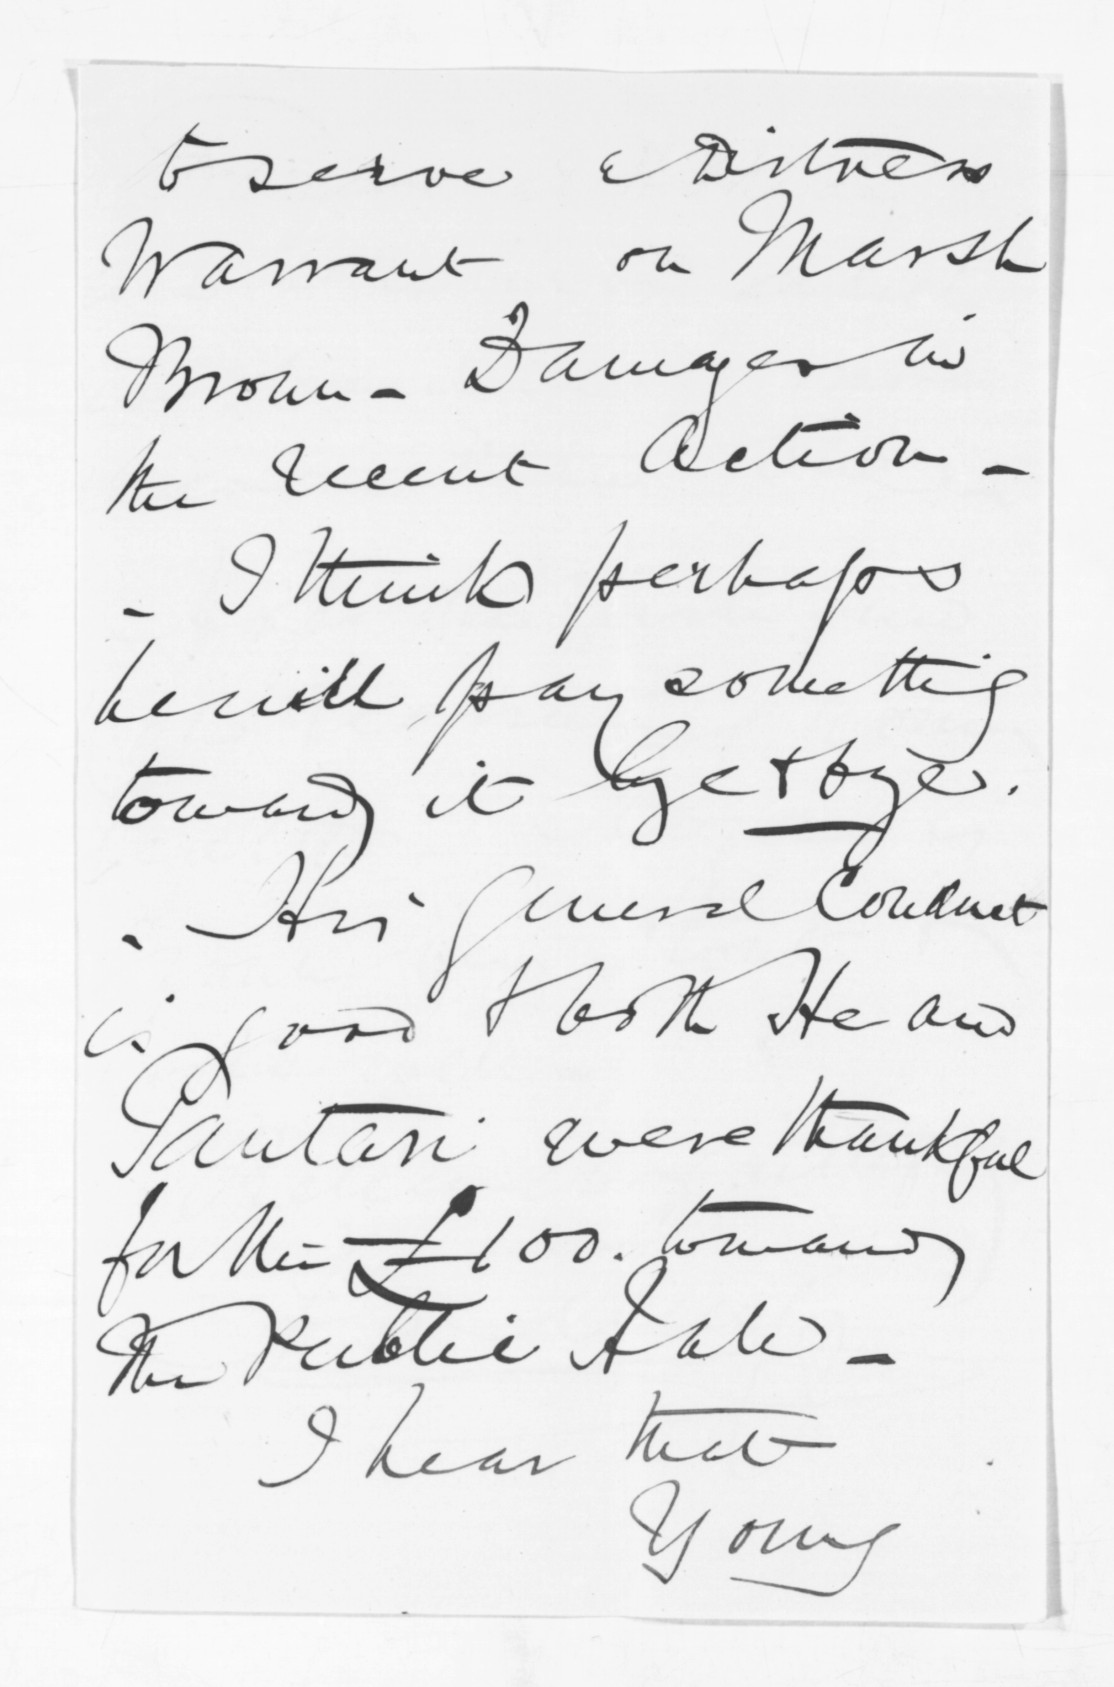 to serve a Distress
Warrant on Marsh
Brown – Damages in
the recent Action –
– I think perhaps
he will pay something
towards it bye & bye.
. His general Conduct
is good & both He and
Tautari were thankful
for the £100. towards
the Public –
I hear that
Young